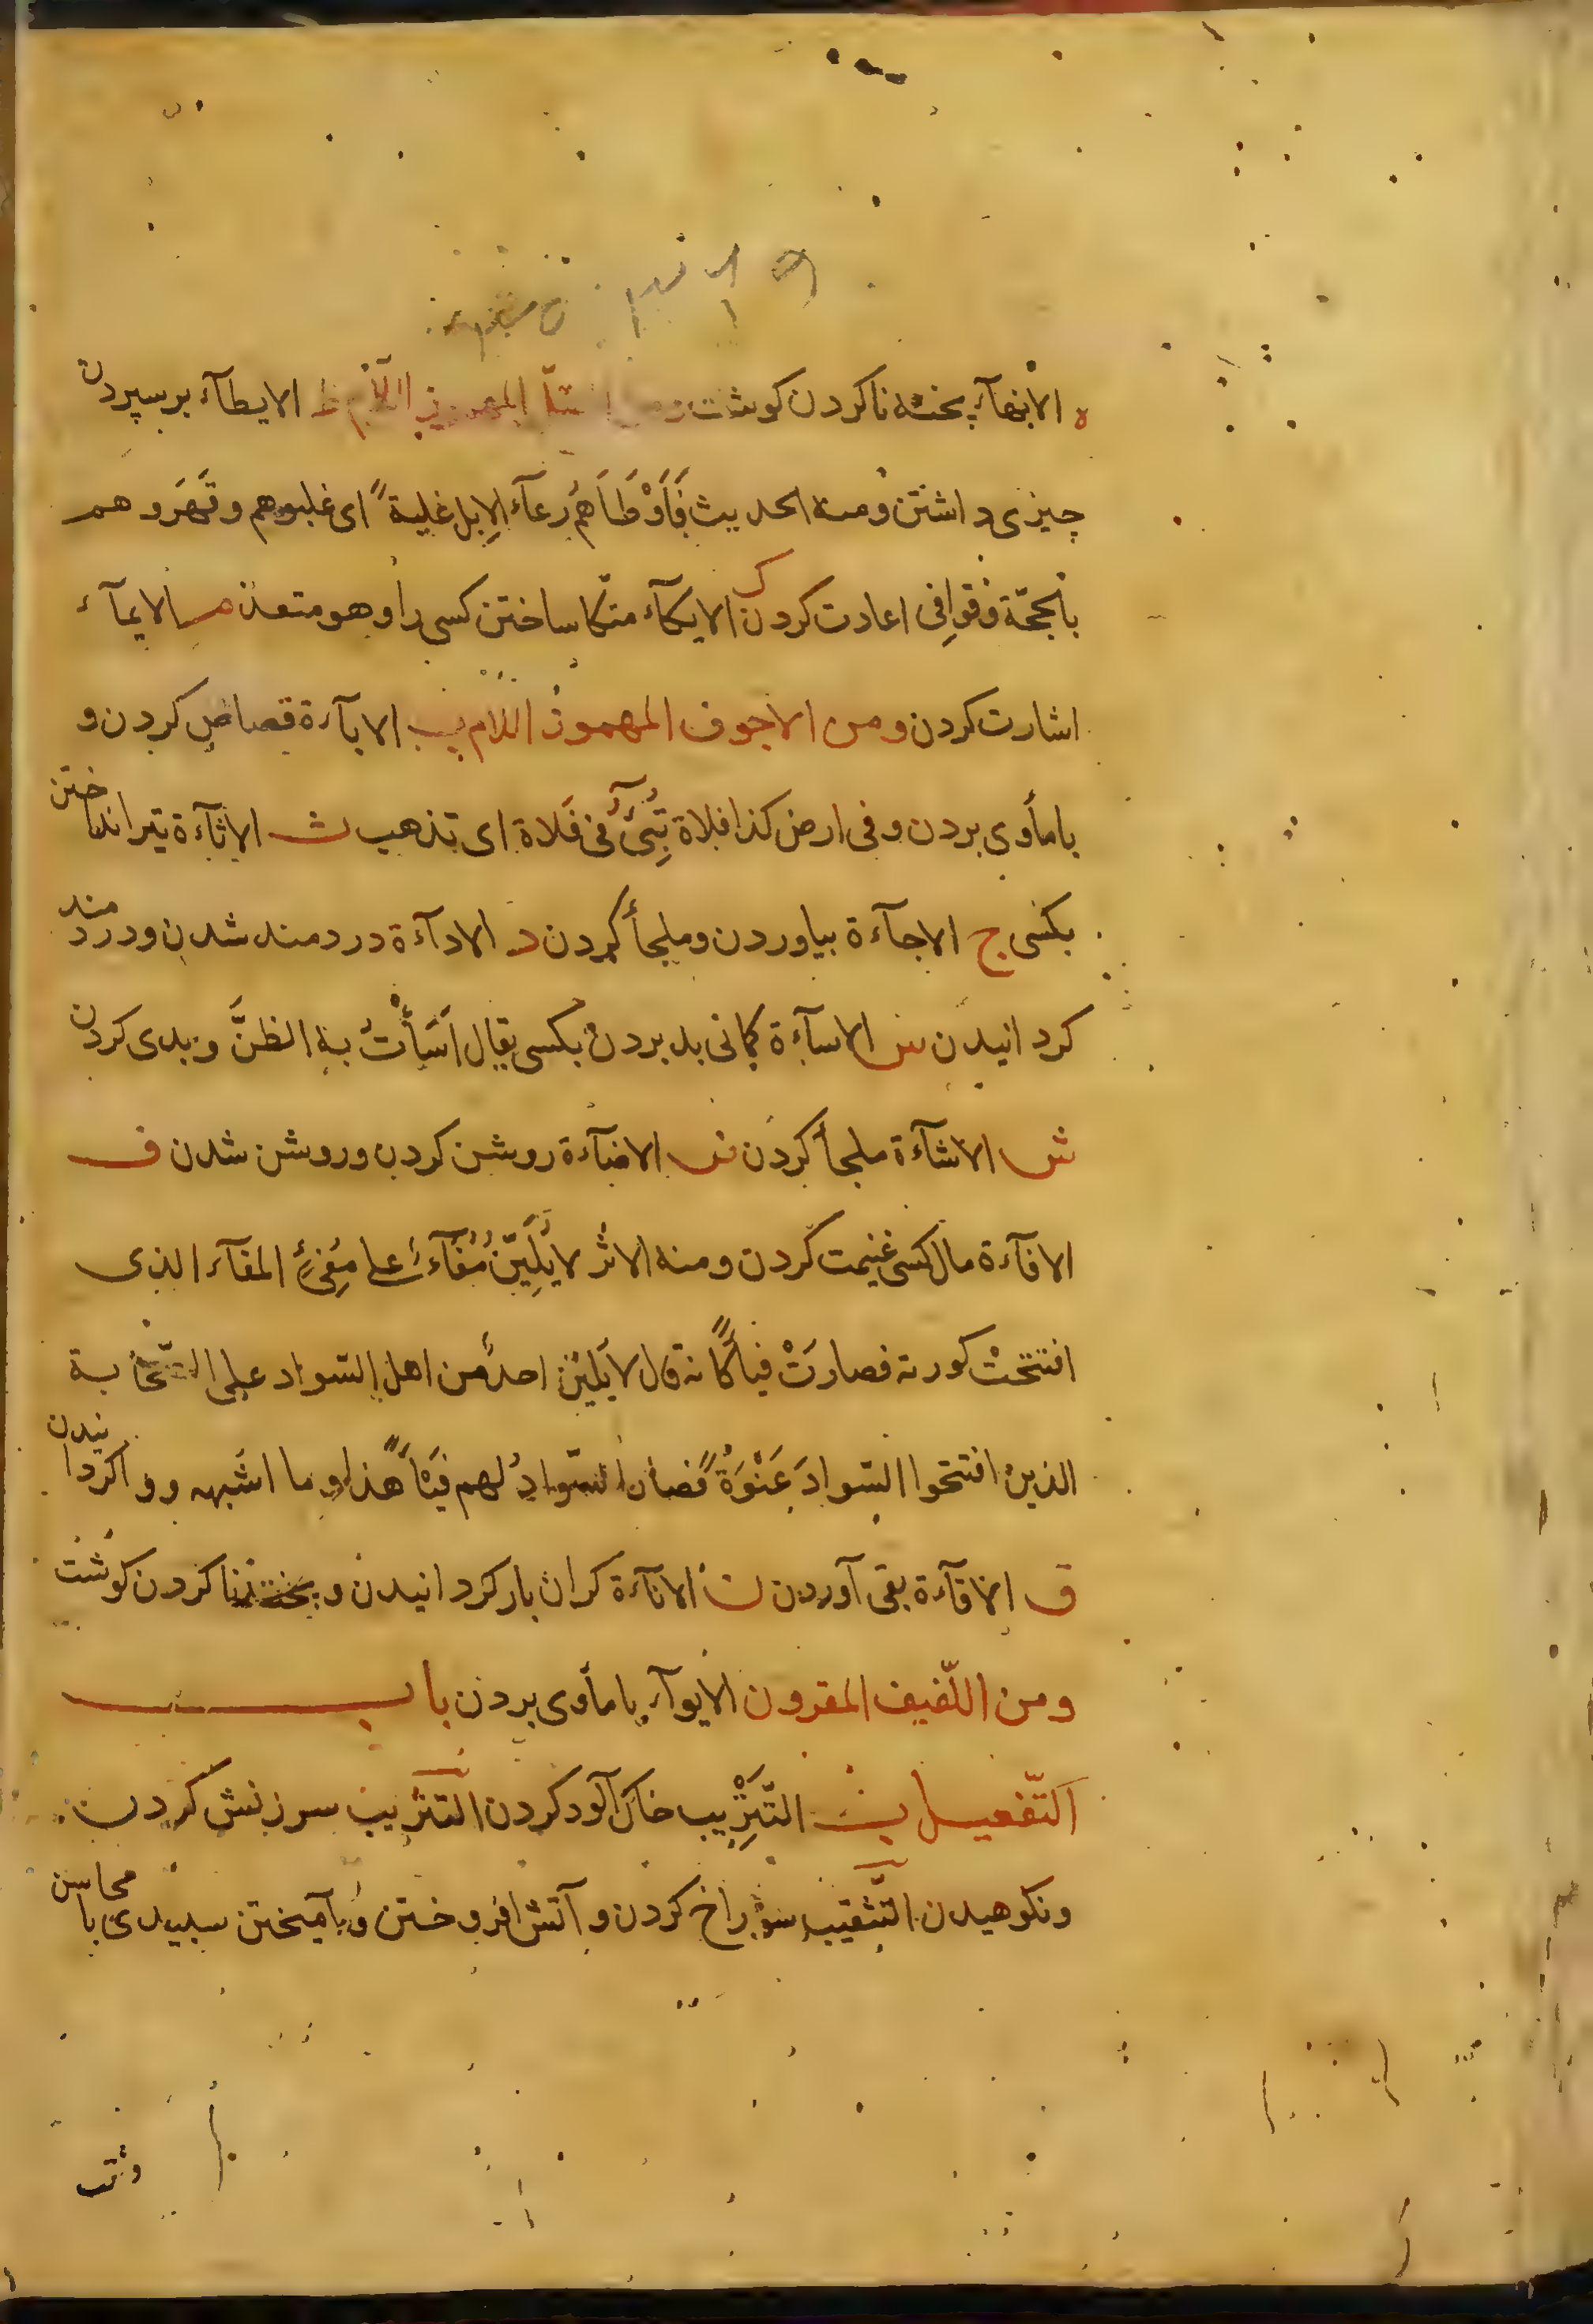 ه الانهآء پخته ناکردن کوشت ومن المثال المهموز اللام ط الایطآء برسپردن
چیزی داشتن ومنه الحدیث فَاَوْطَاَهُم رعآء الاِبل غلبة ً ای غلبوهم وقَهَروهم
بالحجّة وقوافی اعادت کردن ک الایکآء متکا ساختن کسی را وهو متعد م الایمآء
اشارت کردن ومن الاجوف المهموز اللام ب الابآءة قصاص کردن و
بامأوی بردن وفی ارض کذا فلاة تُبِیُٔ فی فَلاة ای تذهب ث الاثآءة تیر انداختن
بکسی ج الاجآءة بیاوردن وملجأ کردن د الادآءة دردمند شدن ودردمند
کردانیدن س الاسآءة کمانی بد بردن بکسی یقال اَسَأْتُ به الظنَّ وبدی کردن
ش الاشآءة ملجأ کردن ض الاضآءة روشن کردن وروشن شدن ف
الافآءة مال کسی غنیمت کردن ومنه الاثر لایَلِیَنَّ مُفآءٌ علی مُفِیٍٔ المفآء الذی
افتتحتْ کورته فصارَتْ فیأً کانه قال لایَلیَنّ احدٌ من اهل السّواد علی الصّحابة
الذین افتتحوا السّوادَ عَنْوَةً فصار السّوادُ لهم فَیْأً هذا وما اشبهه وواکردانیدن
ق الاقآءة بقی آوردن ن الانآءة کران بار کردانیدن و پخته ناکردن کوشت
ومن اللّفیف المقرون الایوآء بامأوی بردن باب
اَلتّفعیل ب التّتْرِیب خاک آلود کردن التّثریب سرزنش کردن
ونکوهیدن التّثقیب سوراخ کردن و آتش افروختن و بآمیختن سپیدی با محاسن
وثقب